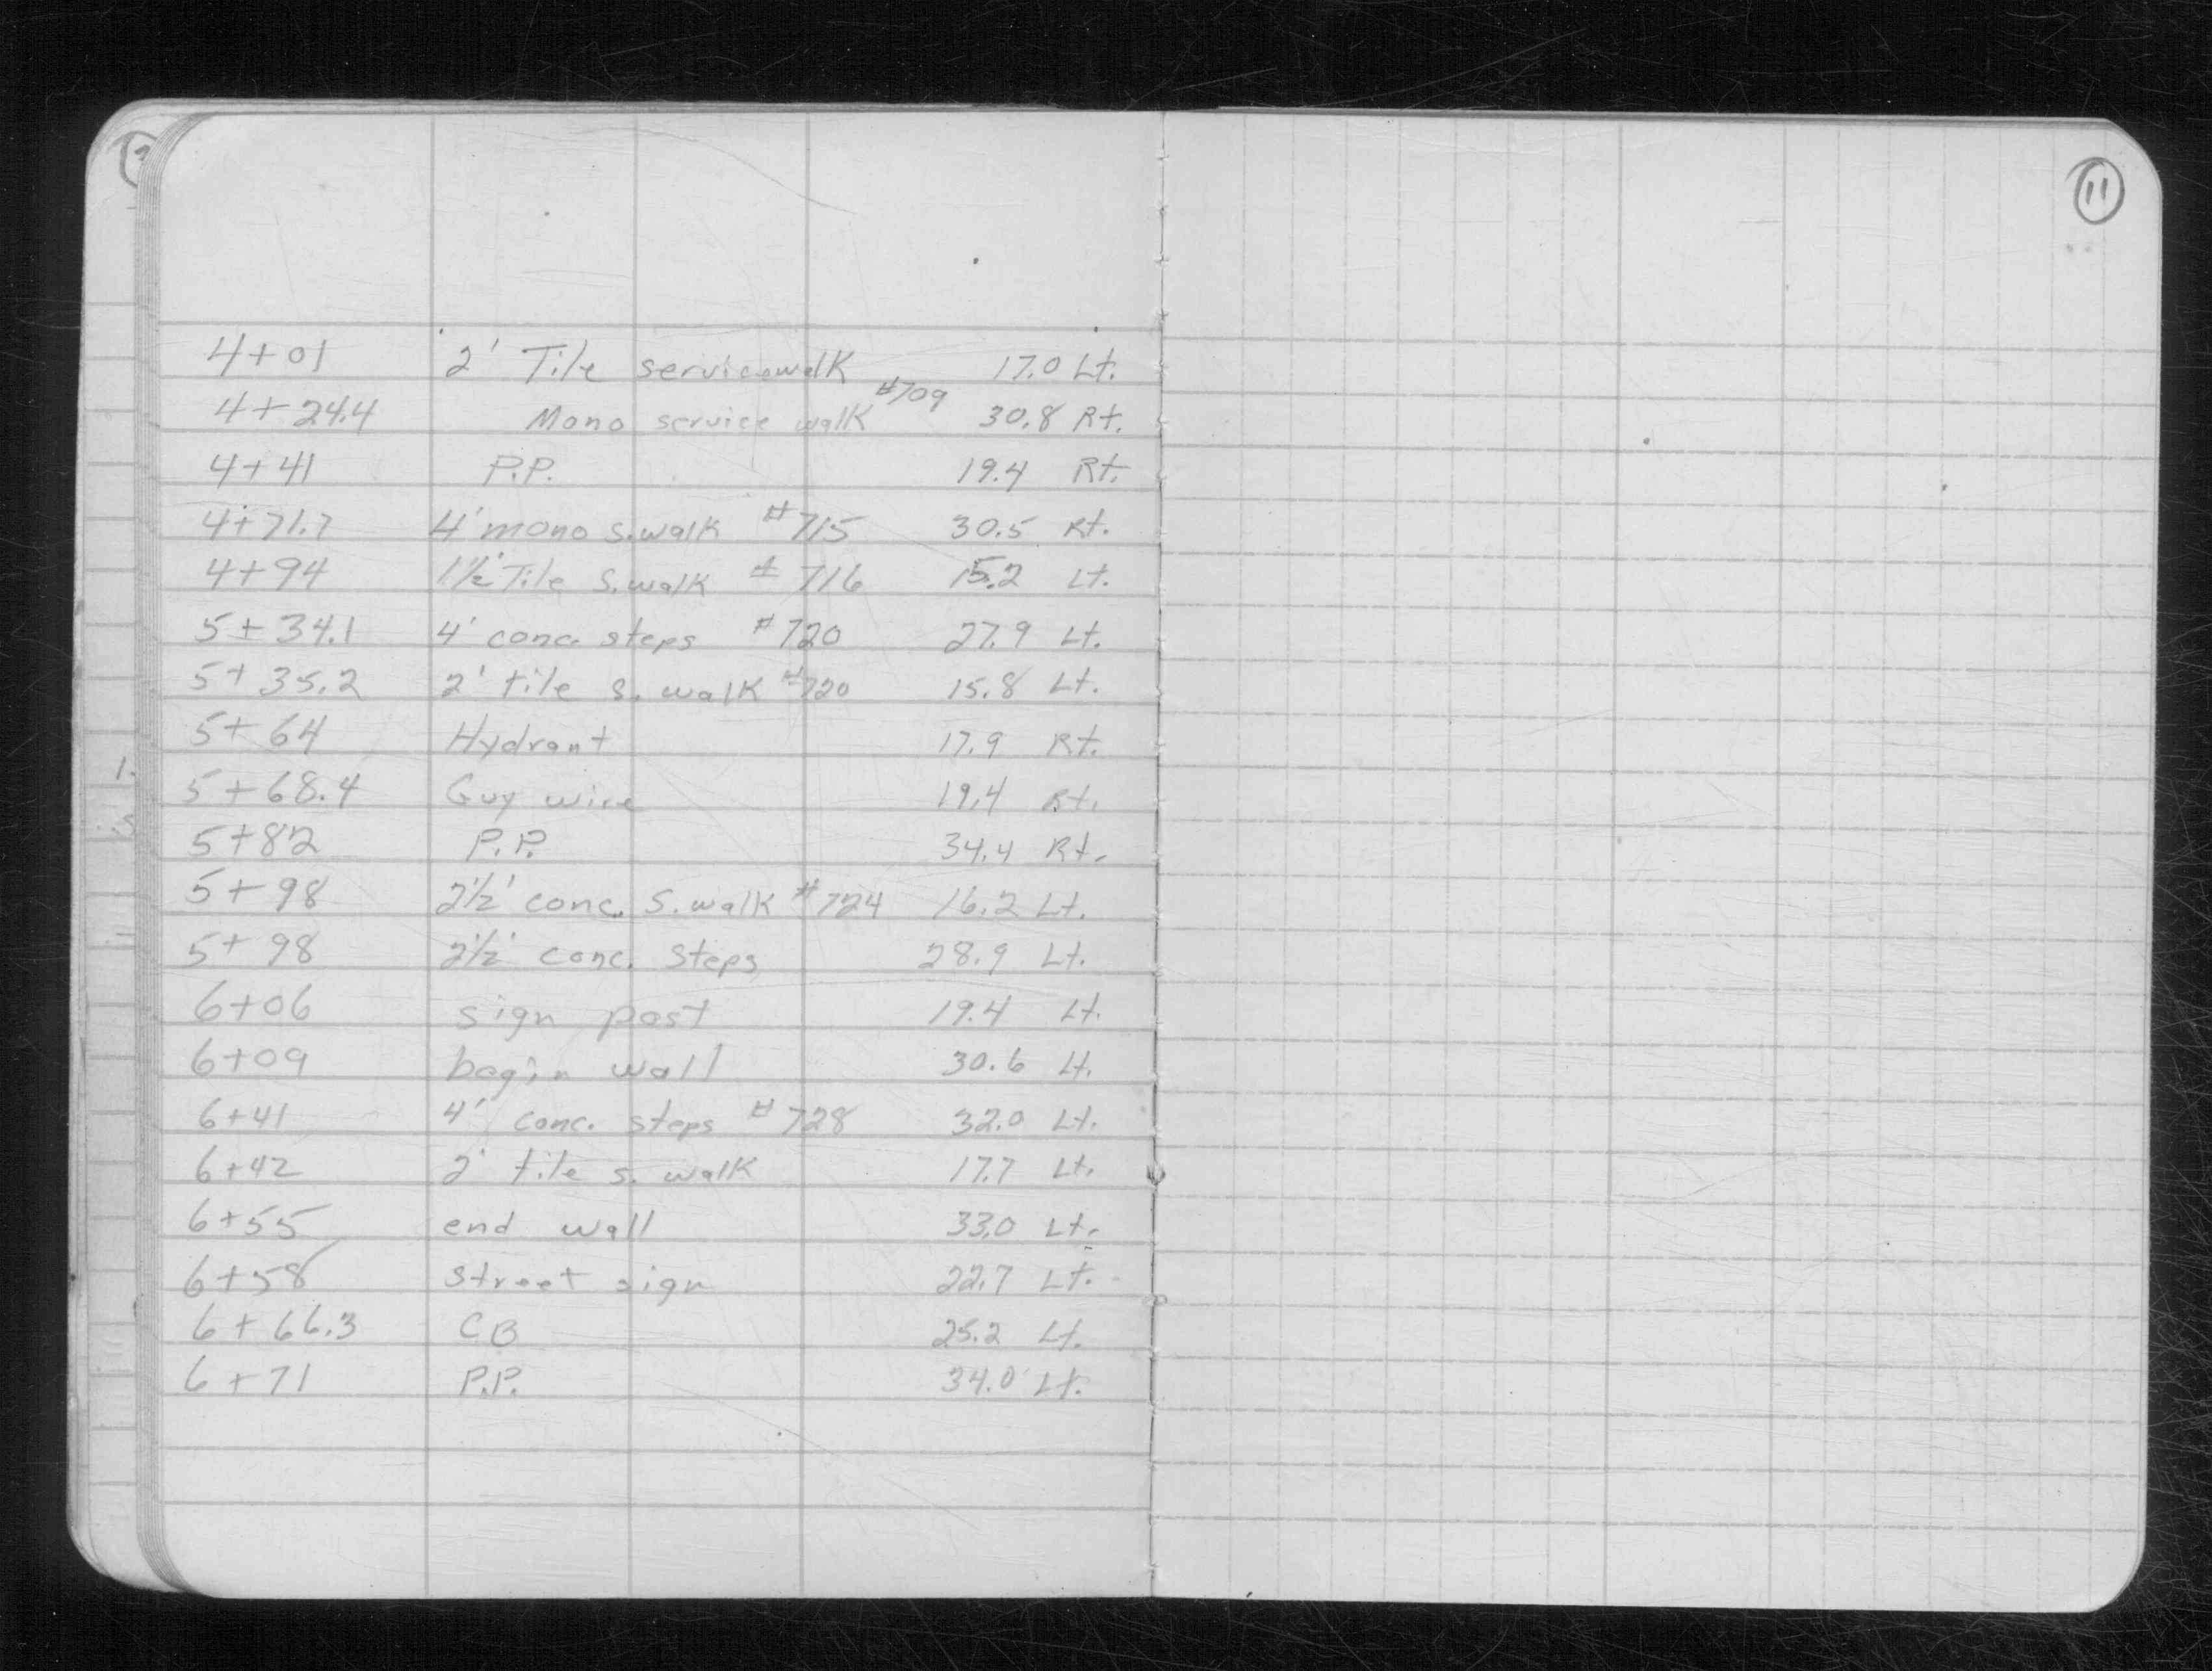 11
4+01 2' Tile servicewalk 17.0 Lt.
4+24.4 Mono service walk #709 30.8 Rt.
4+41 P.P. 19.4 Rt.
4+71.7 4' mono s.walk #715 30.5 Rt.
4+94 1½' Tile S.walk # 716 15.2 Lt.
5+34.1 4' conc. steps #720 27.9 Lt.
5+35.2 2' tile s. walk #720 15.8 Lt.
5+64 Hydrant 17.9 Rt.
5+68.4 Guy wire 19.4 Rt.
5+82 P.P. 34.4 Rt.
5+98 2½' conc. S.walk #724 16.2 Lt.
5+98 2½' conc. steps 28.9 Lt.
6+06 sign post 19.4 Lt.
6+09 begin wall 30.6 Lt.
6+41 4' conc. steps #728 32.0 Lt.
6+42 2' tile s. walk 17.7 Lt.
6+55 end wall 33.0 Lt.
6+58 street sign 22.7 Lt.
6+66.3 CB 25.2 Lt.
6+71 P.P. 34.0 Lt.